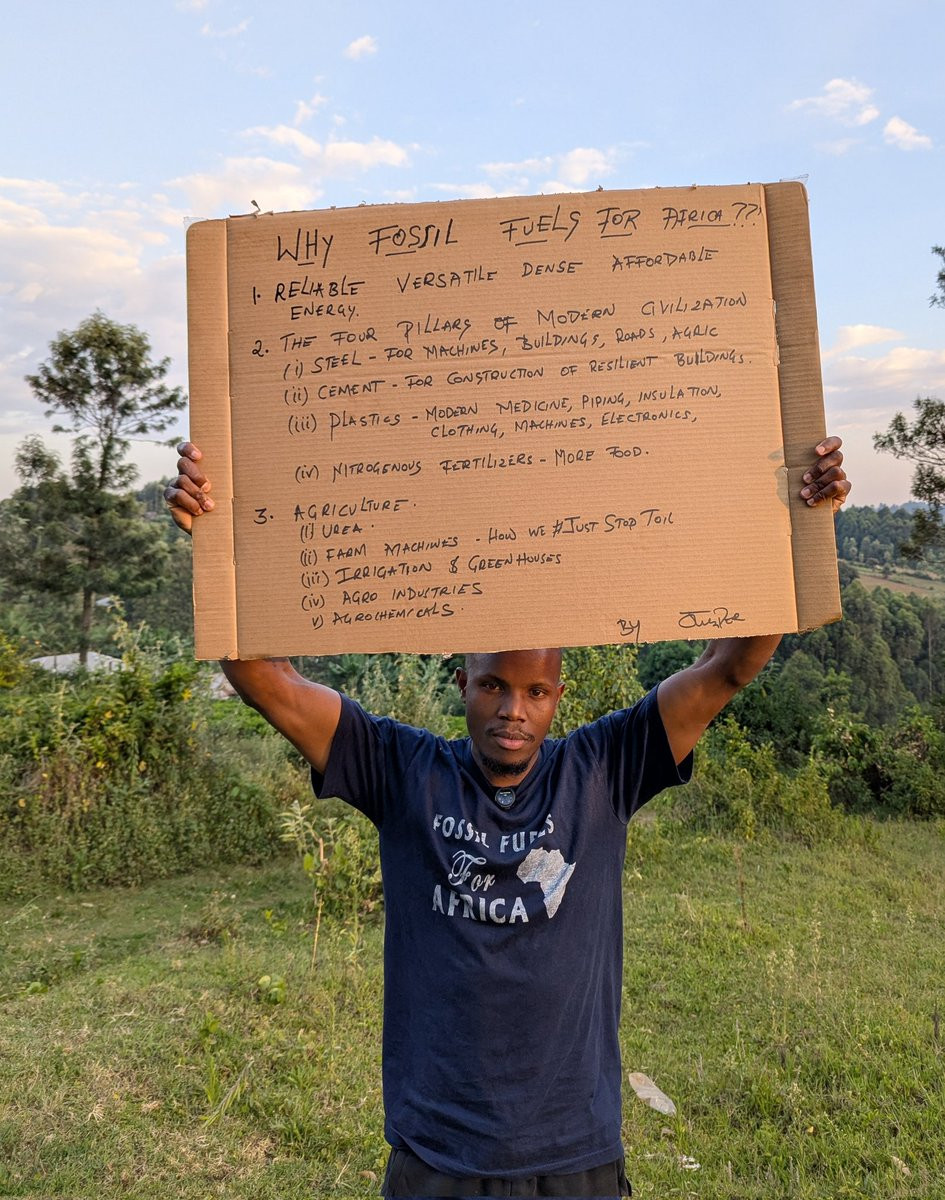 WHY FOSSIL FUELS FOR AFRICA??
1. RELIABLE VERSATILE DENSE AFFORDABLE
ENERGY.
2. THE FOUR PILLARS OF MODERN CIVILIZATION
(i) STEEL - FOR MACHINES, BUILDINGS, ROADS, AGRIC
(ii) CEMENT - FOR CONSTRUCTION OF RESILIENT BUILDINGS.
(iii) PLASTICS - MODERN MEDICINE, PIPING, INSULATION,
CLOTHING, MACHINES, ELECTRONICS,
(iv) NITROGENOUS FERTILIZERS - MORE FOOD.
3. AGRICULTURE.
(i) UREA.
(ii) FARM MACHINES - HOW WE #JUST STOP TOIL
(iii) IRRIGATION & GREENHOUSES
(iv) AGRO INDUSTRIES
v) AGROCHEMICALS.
BY
FOSSIL FUELS
For
AFRICA